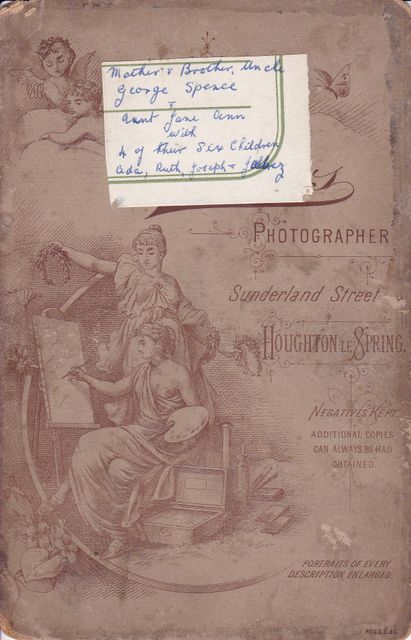 Mother's Brother, Uncle
George Spence
&
Aunt Jane Ann
with
4 of their Six Children
Ada, Ruth, Joseph &
PHOTOGRAPHER
Sunderland Street
HOUGHTON LE SPRING.
NEGATIVES KEPT
ADDITIONAL COPIES
CAN ALWAYS BE HAD
OBTAINED
PORTRAITS OF EVERY
DESCRIPTION ENLARGED